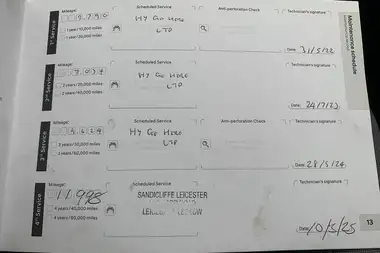 Maintenance schedule
1st Service
Mileage:
5790
1 year/10,000 miles
Scheduled Service
HY GO HORO
LTD
Anti-perforation Check
Technician's signature
Date: 31/5/22
2nd Service
Mileage:
2 years/20,000 miles
2 years/40,000 miles
Scheduled Service
HY GO HORO
LTD
Technician's signature
Date: 24/7/23
3rd Service
Mileage:
3 years/30,000 miles
3 years/60,000 miles
Scheduled Service
HY GO HORO
LTD
Anti-perforation Check
Technician's signature
Date: 28/5/24
4th Service
Mileage:
11,998
4 years/40,000 miles
4 years/80,000 miles
Scheduled Service
SANDICLIFFE LEICESTER
Technician's signature
Date: 10/5/25
13